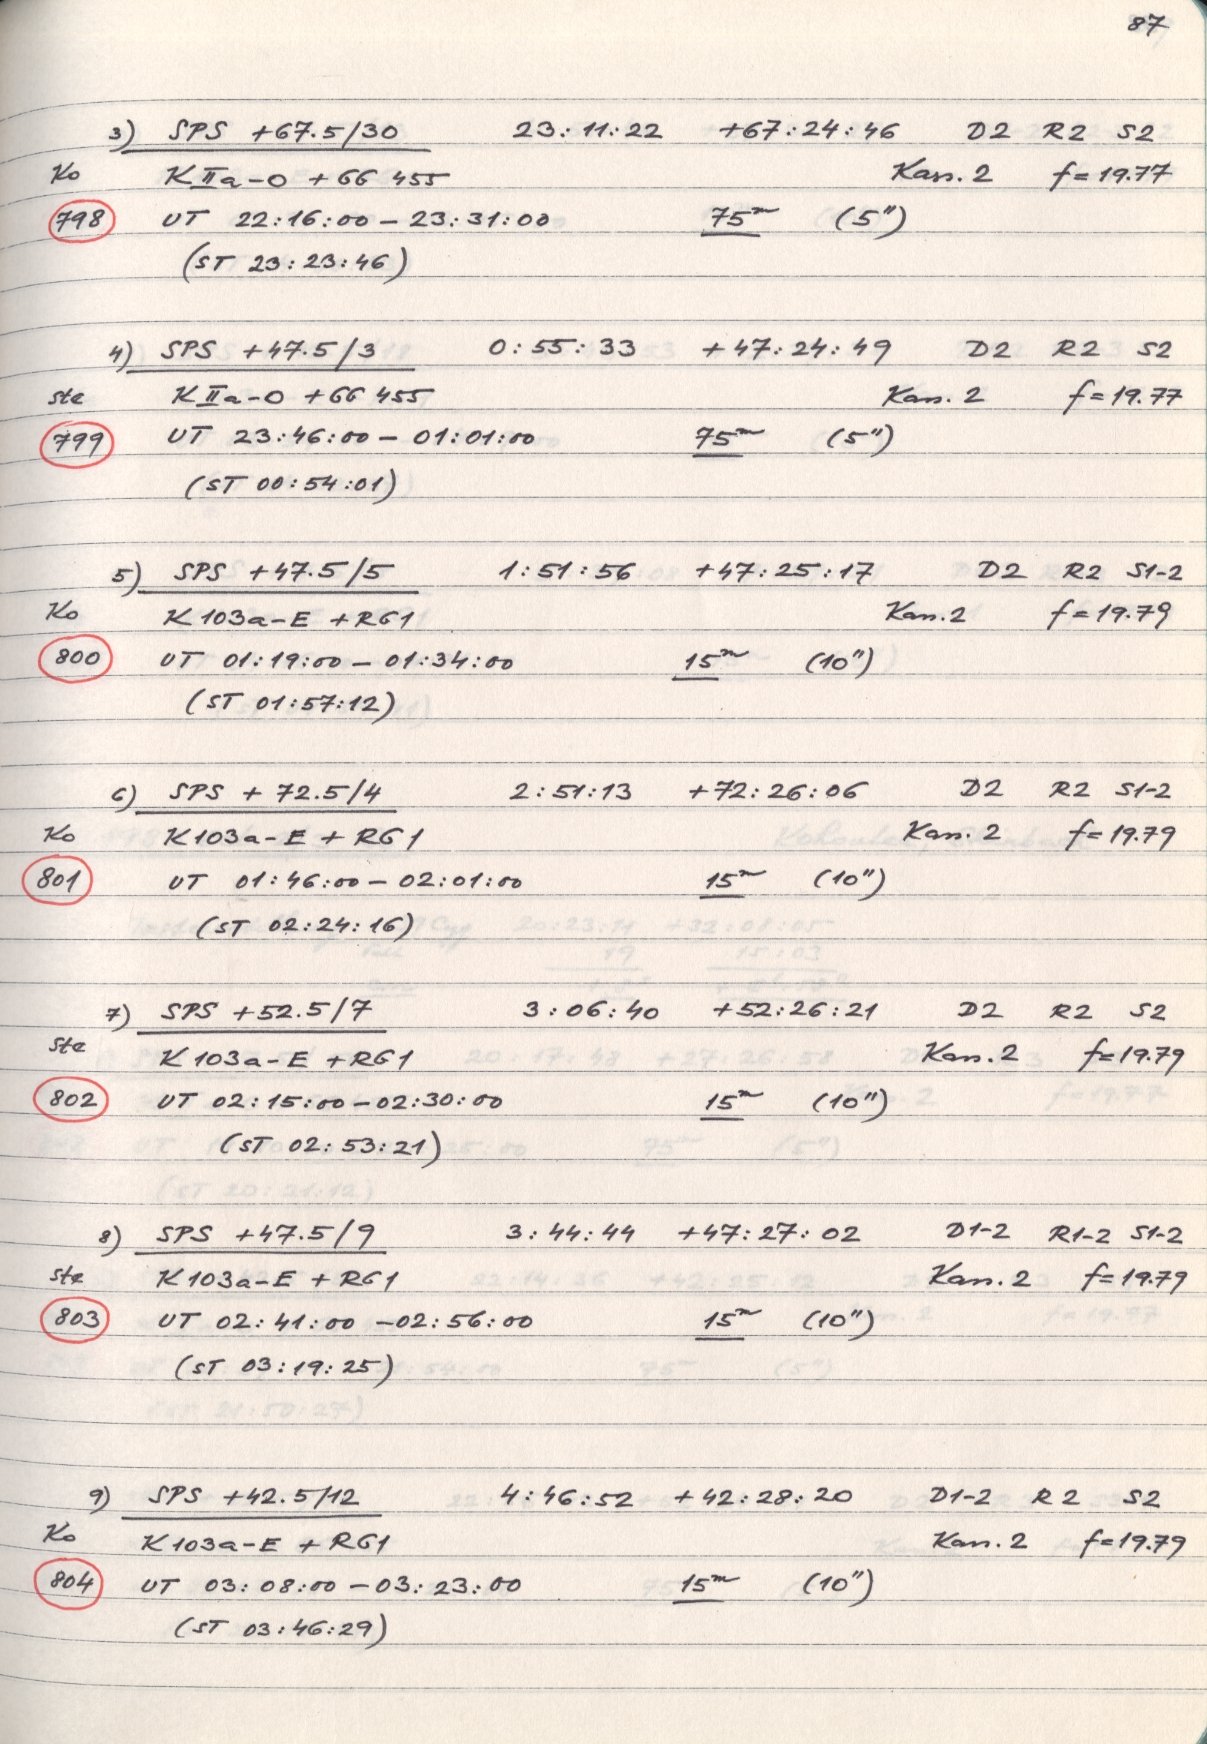 87
3) SPS +67.5/30 23:11:22 +67:24:46 D2 R2 S2
Ko KIIa-O + GG 455 Kan. 2 f=19.77
798 UT 22:16:00 – 23:31:00 75m (5")
(ST 23:23:46)
4) SPS +47.5/3 0:55:33 +47:24:49 D2 R2 S2
Ste KIIa-O + GG 455 Kan. 2 f=19.77
799 UT 23:46:00 – 01:01:00 75m (5")
(ST 00:54:01)
5) SPS +47.5/5 1:51:56 +47:25:17 D2 R2 S1-2
Ko K103a-E + RG1 Kan. 2 f=19.79
800 UT 01:19:00 – 01:34:00 15m (10")
(ST 01:57:12)
6) SPS +72.5/4 2:51:13 +72:26:06 D2 R2 S1-2
Ko K103a-E + RG1 Kan. 2 f=19.79
801 UT 01:46:00 – 02:01:00 15m (10")
(ST 02:24:16)
7) SPS +52.5/7 3:06:40 +52:26:21 D2 R2 S2
Ste K103a-E + RG1 Kan. 2 f=19.79
802 UT 02:15:00 – 02:30:00 15m (10")
(ST 02:53:21)
8) SPS +47.5/9 3:44:44 +47:27:02 D1-2 R1-2 S1-2
Ste K103a-E + RG1 Kan. 2 f=19.79
803 UT 02:41:00 – 02:56:00 15m (10")
(ST 03:19:25)
9) SPS +42.5/12 4:46:52 +42:28:20 D1-2 R2 S2
Ko K103a-E + RG1 Kan. 2 f=19.79
804 UT 03:08:00 – 03:23:00 15m (10")
(ST 03:46:29)